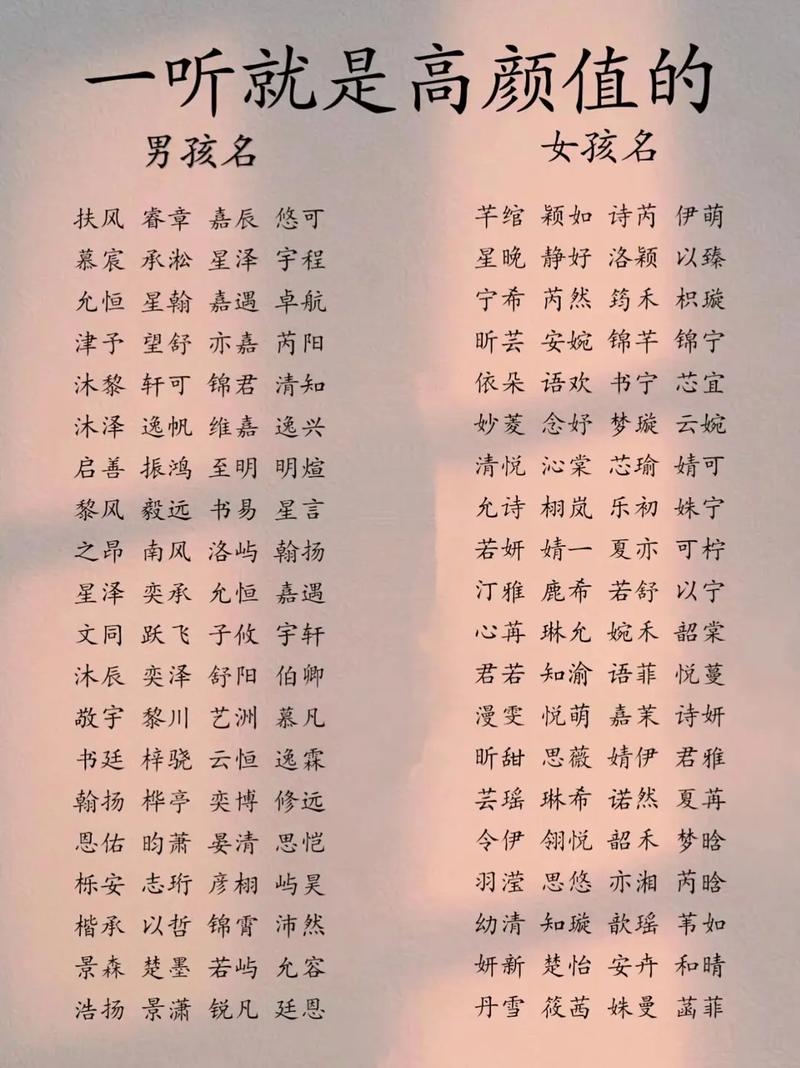 一听就是高颜值的
男孩名
扶风 睿章 嘉辰 悠可
慕宸 承淞 星泽 宇程
允恒 星翰 嘉遇 卓航
津予 望舒 亦嘉 芮阳
沐黎 轩可 锦君 清知
沐泽 逸帆 维嘉 逸兴
启善 振鸿 至明 明煊
黎风 毅远 书易 星言
之昂 南风 洛屿 翰扬
星泽 奕承 允恒 嘉遇
文同 跃飞 子攸 宇轩
沐辰 奕泽 舒阳 伯卿
敬宇 黎川 艺洲 慕凡
书廷 梓骁 云恒 逸霖
翰扬 桦亭 奕博 修远
恩佑 昀萧 晏清 思恺
栎安 志珩 彦栩 屿昊
楷承 以哲 锦霄 沛然
景森 楚墨 若屿 允容
浩扬 景潇 锐凡 廷恩
女孩名
芊绾 颖如 诗芮 伊萌
星晚 静好 洛颖 以臻
宁希 芮然 筠禾 枳璇
昕芸 安婉 锦芊 锦宁
依朵 语欢 书宁 芯宜
妙菱 念妤 梦璇 云婉
清悦 沁棠 芯瑜 婧可
允诗 栩岚 乐初 姝宁
若妍 婧一 夏亦 可柠
汀雅 鹿希 若舒 以宁
心苒 琳允 婉禾 韶棠
君若 知渝 语菲 悦蔓
漫雯 悦萌 嘉茉 诗妍
昕甜 思薇 婧伊 君雅
芸瑶 琳希 诺然 夏苒
令伊 翎悦 韶禾 梦晗
羽滢 思悠 亦湘 芮晗
幼清 知璇 歆瑶 苇如
妍新 楚怡 安卉 和晴
丹雪 筱茜 姝曼 菡菲